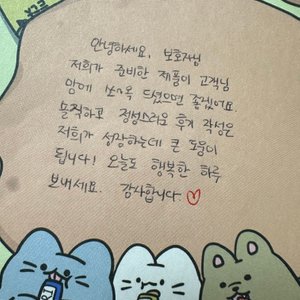 안녕하세요, 보호자님
저희가 준비한 제품이 고객님
맘에 쏘-옥 드셨으면 좋겠어요
솔직하고 정성스러운 후기 작성은
저희가 성장하는데 큰 도움이
됩니다! 오늘도 행복한 하루
보내세요. 감사합니다.